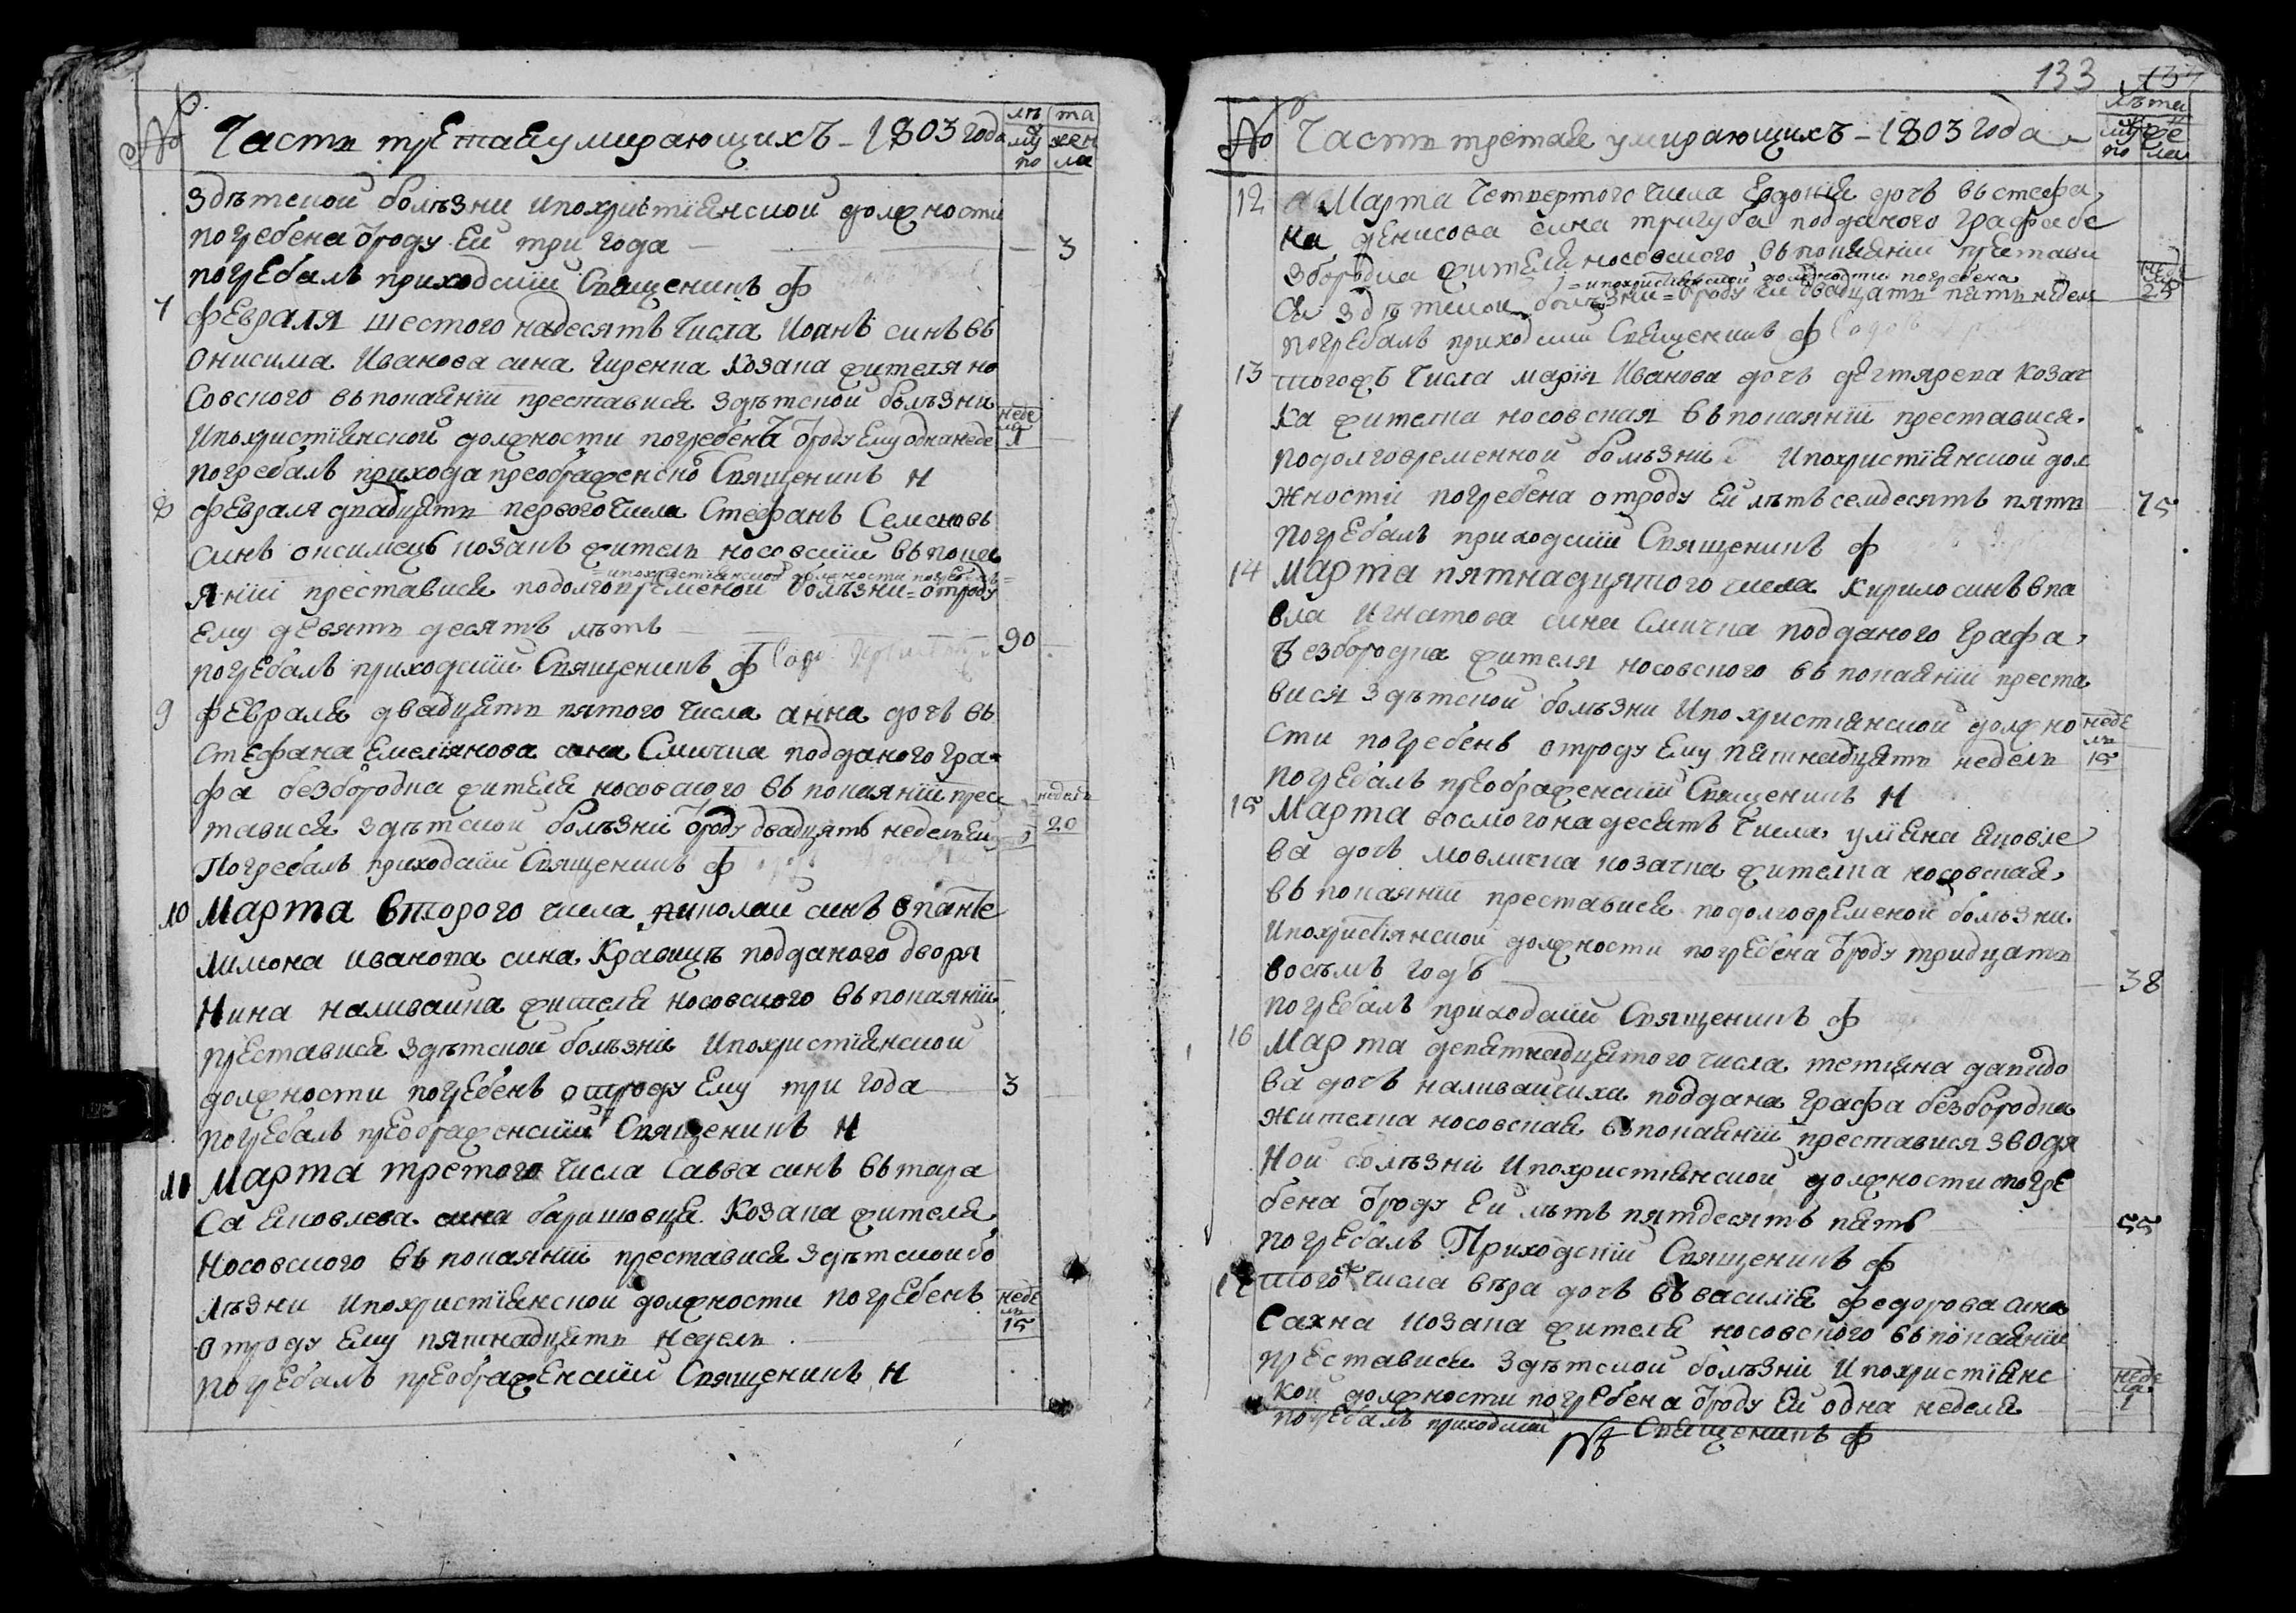 № Часть третая умирающихъ – 1803 года
лѣ та
му жен
по ла
здѣтской болѣзни ипохристіянской должности
погребена отроду Ей три года 3
погребалъ приходскій Священикъ ф
7 февраля шестого надесять числа Иоанъ синъ въ
Онисима Иванова сина Гиренка Козака жителя но
Совского въпокаяніи преставися здѣтской болѣзни
Ипохристіянской должности погребенъ отроду Ему одна неде
неде ля 1
погребалъ прихода преображенско Священикъ Н
8 февраля двадцять первого числа Стефанъ Семеновъ
синъ онсимецъ козакъ житель носовскій въ пока
=ипохристіянской должности погребенъ=
яніи преставися подолговременой болѣзни = отроду
Ему девять десять лѣтъ 90
погребалъ приходскій Священикъ ф
9 февраля двадцять пятого числа анна дочъ въ
Стефана Емеліянова сина Смичка подданого гра
фа безбородка жителя носовского въ покаяніи прес
тавися здѣтской болѣзніи отроду двадцять недель Ей
недель 20
Погребалъ приходскій Священикъ ф
10 Марта второго числа николай синъ впанте
лимона иванова сина Кравцъ подданого дворя
Нина наливайка жителя носовского въ покаяніи
преставися здѣтской болѣзніи Ипохристіянской
должности погребенъ отроду Ему три года 3
погребалъ преображенскій Священикъ Н
11 Марта третого числа Савва синъ въ тара
Са яковлева сина баришовця Козака жителя
Носовского въ покаяніи преставися здѣтской бо
лѣзни Ипохристіянской должности погребенъ
неде ль 15
отроду Ему пятнадцять недель
погребалъ преображенскій Священикъ Н
133
№ Часть третая умирающихъ – 1803 года
лѣта
му же
по ла
12 Марта Четвертого числа Евдокія дочъ въ стефа
на денисова сина тригуба подданого Графа бе
збородка жителя носовского въ покаяніи престави
=ипохристіянской должности погребена
Ся здѣтской болѣзни = отроду Ей двадцать пять недель
неде 25
погребалъ приходскій Священикъ ф
13 тогожъ числа марія Иванова дочъ дегтярева козач
ка жителка носовская въ покаяніи преставися.
подолговременной болѣзніи Ипохристіянской дол
жности погребена отроду Ей лѣтъ семдесять пять 75
погребалъ приходскій Священикъ ф
14 Марта пятнадцятого числа Кирило синъ впа
вла Игнатова сина Смичка подданого Графа
Безбородка жителя носовского въ покаяніи преста
вися здѣтской болѣзни Ипохристіянской должно
сти погребенъ отроду Ему пятнадцять недель
неде ль 15
погребалъ преображенскій Священикъ Н
15 Марта восмогонадесять числа уліяна яковле
ва дочъ мовличка козачка жителка носовская
въ покаяніи преставися подолговременой болѣзни.
Ипохристіянской должности погребена отроду тридцать
восѣмъ годъ 38
погребалъ приходскій Священикъ ф
16 Марта девятнадцятого числа тетіяна давидо
ва дочъ наливайчиха поддана графа безбородка
жителка носовская въ покаяніи преставися зводя
Ной болѣзніи Ипохристіянской должности погре
бена отроду Ей лѣтъ пятдесять пять 55
погребалъ Приходскій Священикъ ф
17 тогожъ числа вѣра дочъ въ василія федорова сина
Сахна козака жителя носовского въ покаяніи
преставися здѣтской болѣзніи Ипохристіянс
кой должности погребена отроду Ей одна неделя
неде ля 1
погребалъ приходскій Священикъ ф